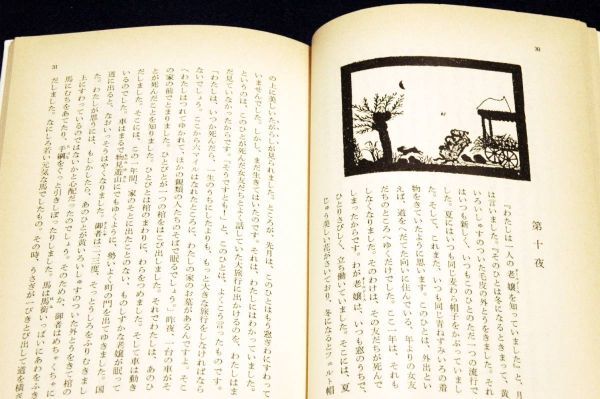 30
第十夜
「わたしは一人の老嬢を知っていました」と、月
は言いました。「そのひとは冬になるときまって、黄
いろいしゅすのついた毛皮の外とうをきました。それ
はいつも新しく、いつもこのひとのただ一つの流行で
した。夏にはいつも同じ麦わら帽子をかぶっていまし
た。そして、これまた、いつも同じ青ねずみいろの着
物をきていたように思います。このひとは、外出とい
えば、道をへだてた向いに住んでいる、年よりの女友
だちのところへゆくだけでした。ここ一年は、それも
しなくなりました。というのは、その友だちが死んで
しまったからです。わが老嬢は、いつも窓のうちで、
ひとりさびしく、立ち働いていました。そこには、夏
じゅう美しい花がさいており、冬になるとフェルト帽
31
の上に美しいたがらしが見られました。ところが、先月は、このひとはもう窓ぎわにすわって
いませんでした。しかし、まだ生きてはいたのです。それは、わたしにはわかっていました。
というのは、このひとが死んだ女友だちとよく話していた大旅行に出かけるのを、わたしはま
だ見ていなかったからです。『そうですとも！』と、このひとは、よくこう言ったものです。
『わたしは、いつか死んだら、一生のうちにしたよりも、もっと大きな旅行をしなければなら
ないでしょう。ここから六マイルはなれたところに、わたしの家のお墓があるんですよ。そこ
へわたしはつれてゆかれて、ほかの親類の人たちのそばで眠るでしょう。』昨夜、一台の車がそ
の家の前でとまりました。ひとびとが一つの棺をはこびだしました。それでわたしは、あのひ
とが死んだことを知りました。ひとびとは棺のまわりに、わらをつめました。そして車は動き
だしました。そこには、この一年間、家のそとに出たことのない、ものしずかな老嬢が眠って
いるのでした。車はまるで物見遊山にでもゆくように、勢いよく町の門を出てゆきました。国
道に出ると、なおいっそうはやくなりました。御者は二、三度、そっとうしろをふりむきまし
た。わたしが思うには、もしかしたら、あのひとが黄いろいしゅすのついた外とうをきて棺の
上にすわっているのではないかと心配だったのでしょう。そのためか、御者はめちゃくちゃに
馬にむちをあてたり、手綱をぐっと引きしぼったりしました。馬は馬銜いっぱいにあわをふき
だしました。なにしろ若い元気な馬でしたもの。その時、うさぎが一ぴきとび出して道を横ぎ